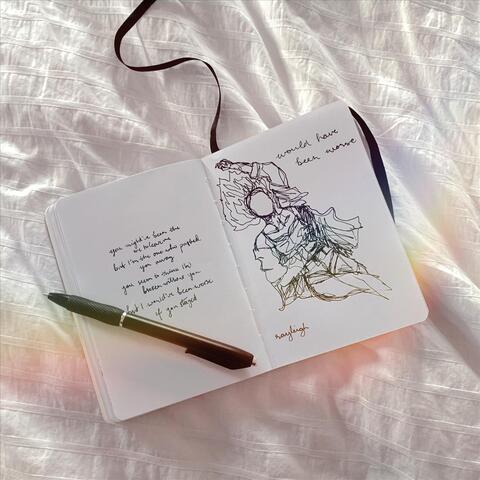 you might've been the
one to leave me
but I'm the one who pushed
you away
you seem to think I'm
broken without you
but I would've been worse
if you stayed
would have
been worse
rayleigh